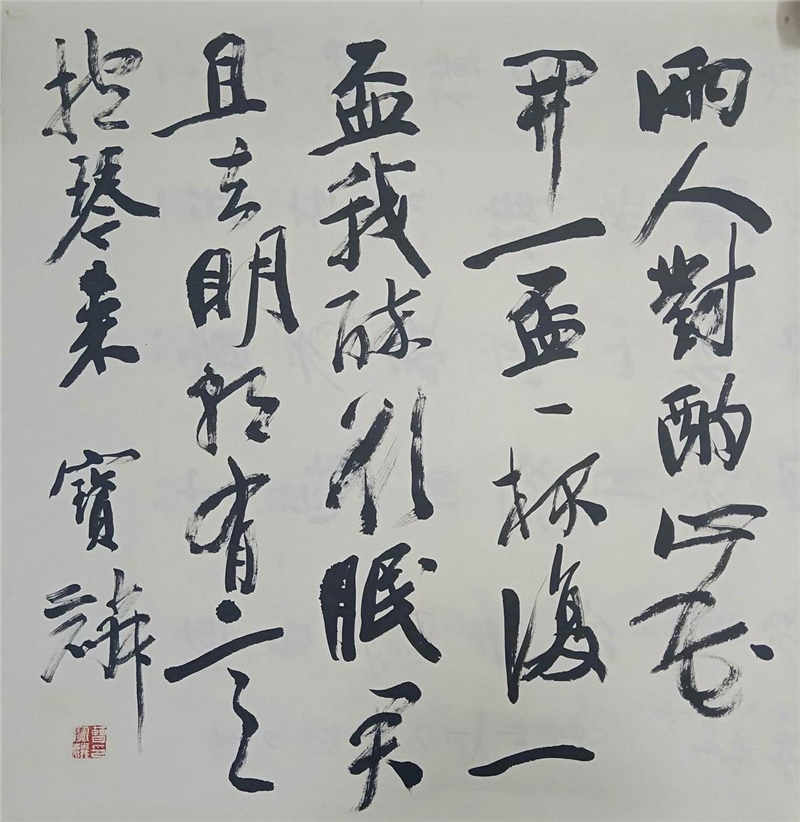 兩人對酌山花
開一盃一杯復一
盃我醉欲眠君
且去明朝有意
抱琴來 寶麟